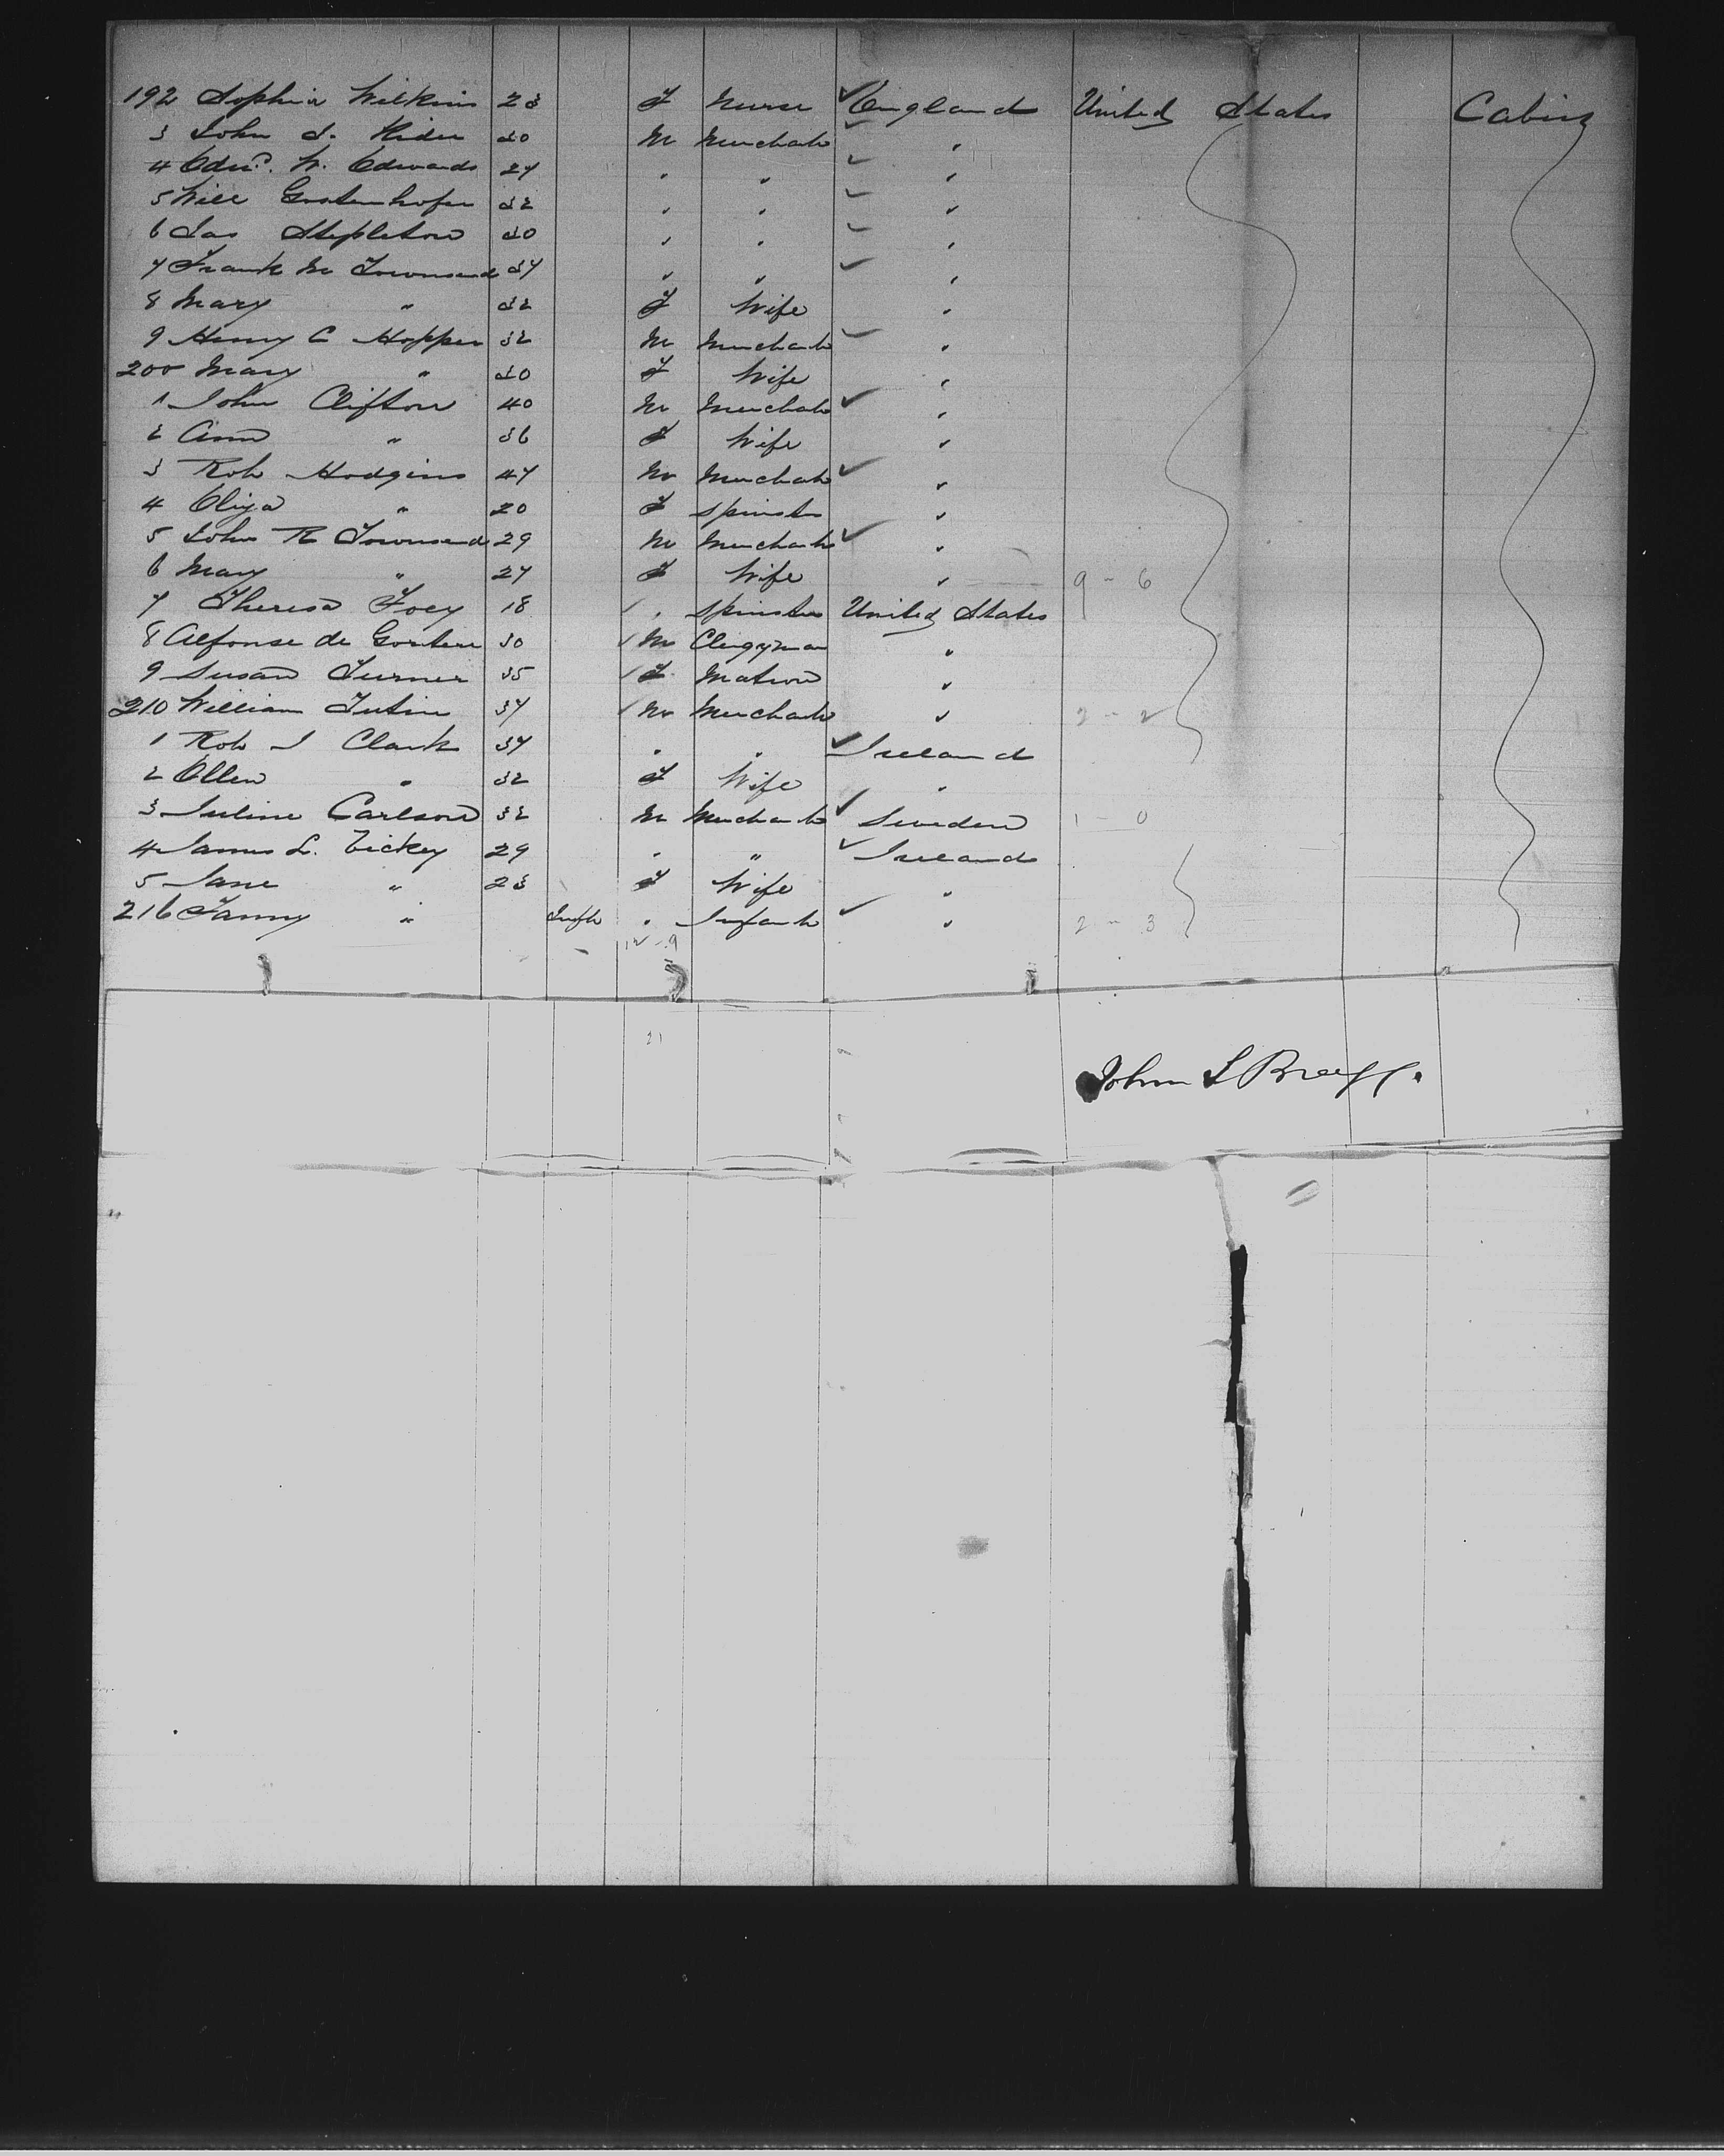 192 Sophia Wilkins 23 F Nurse ✓ England United States Cabin
3 John S. Rider 30 M Merchant ✓ "
4 Edwd. W. Edwards 27 " " ✓ "
5 Will Gostenhofer 32 " " ✓ "
6 Jas Stepleton 30 " " ✓ "
7 Frank M Townsend 37 " " ✓ "
8 Mary " 32 F Wife "
9 Henry C Hopper 32 M Merchant ✓ "
200 Mary " 30 F Wife "
1 John Clifton 40 M Merchant ✓ "
2 Ann " 36 F Wife "
3 Rob Hodgins 47 M Merchant ✓ "
4 Eliza " 20 F Spinster "
5 John R Townsend 29 M Merchant ✓ "
6 Mary " 27 F Wife " 9 - 6
7 Theresa Foey 18 " Spinster United States
8 Alfonse de 30 M Clergyman "
9 Susan Turner 35 F Matron "
210 William Tutin 37 M Merchant " 2 - 2
1 Rob J Clark 37 " " ✓ Ireland
2 Ellen " 32 F Wife "
3 Juline Carlson 32 M Merchant ✓ Sweden 1 - 0
4 James L. Vickey 29 " " ✓ Ireland
5 Jane " 23 F Wife "
216 Fanny " Infts " Infant ✓ " 2 - 3
12 - 9
21
John S